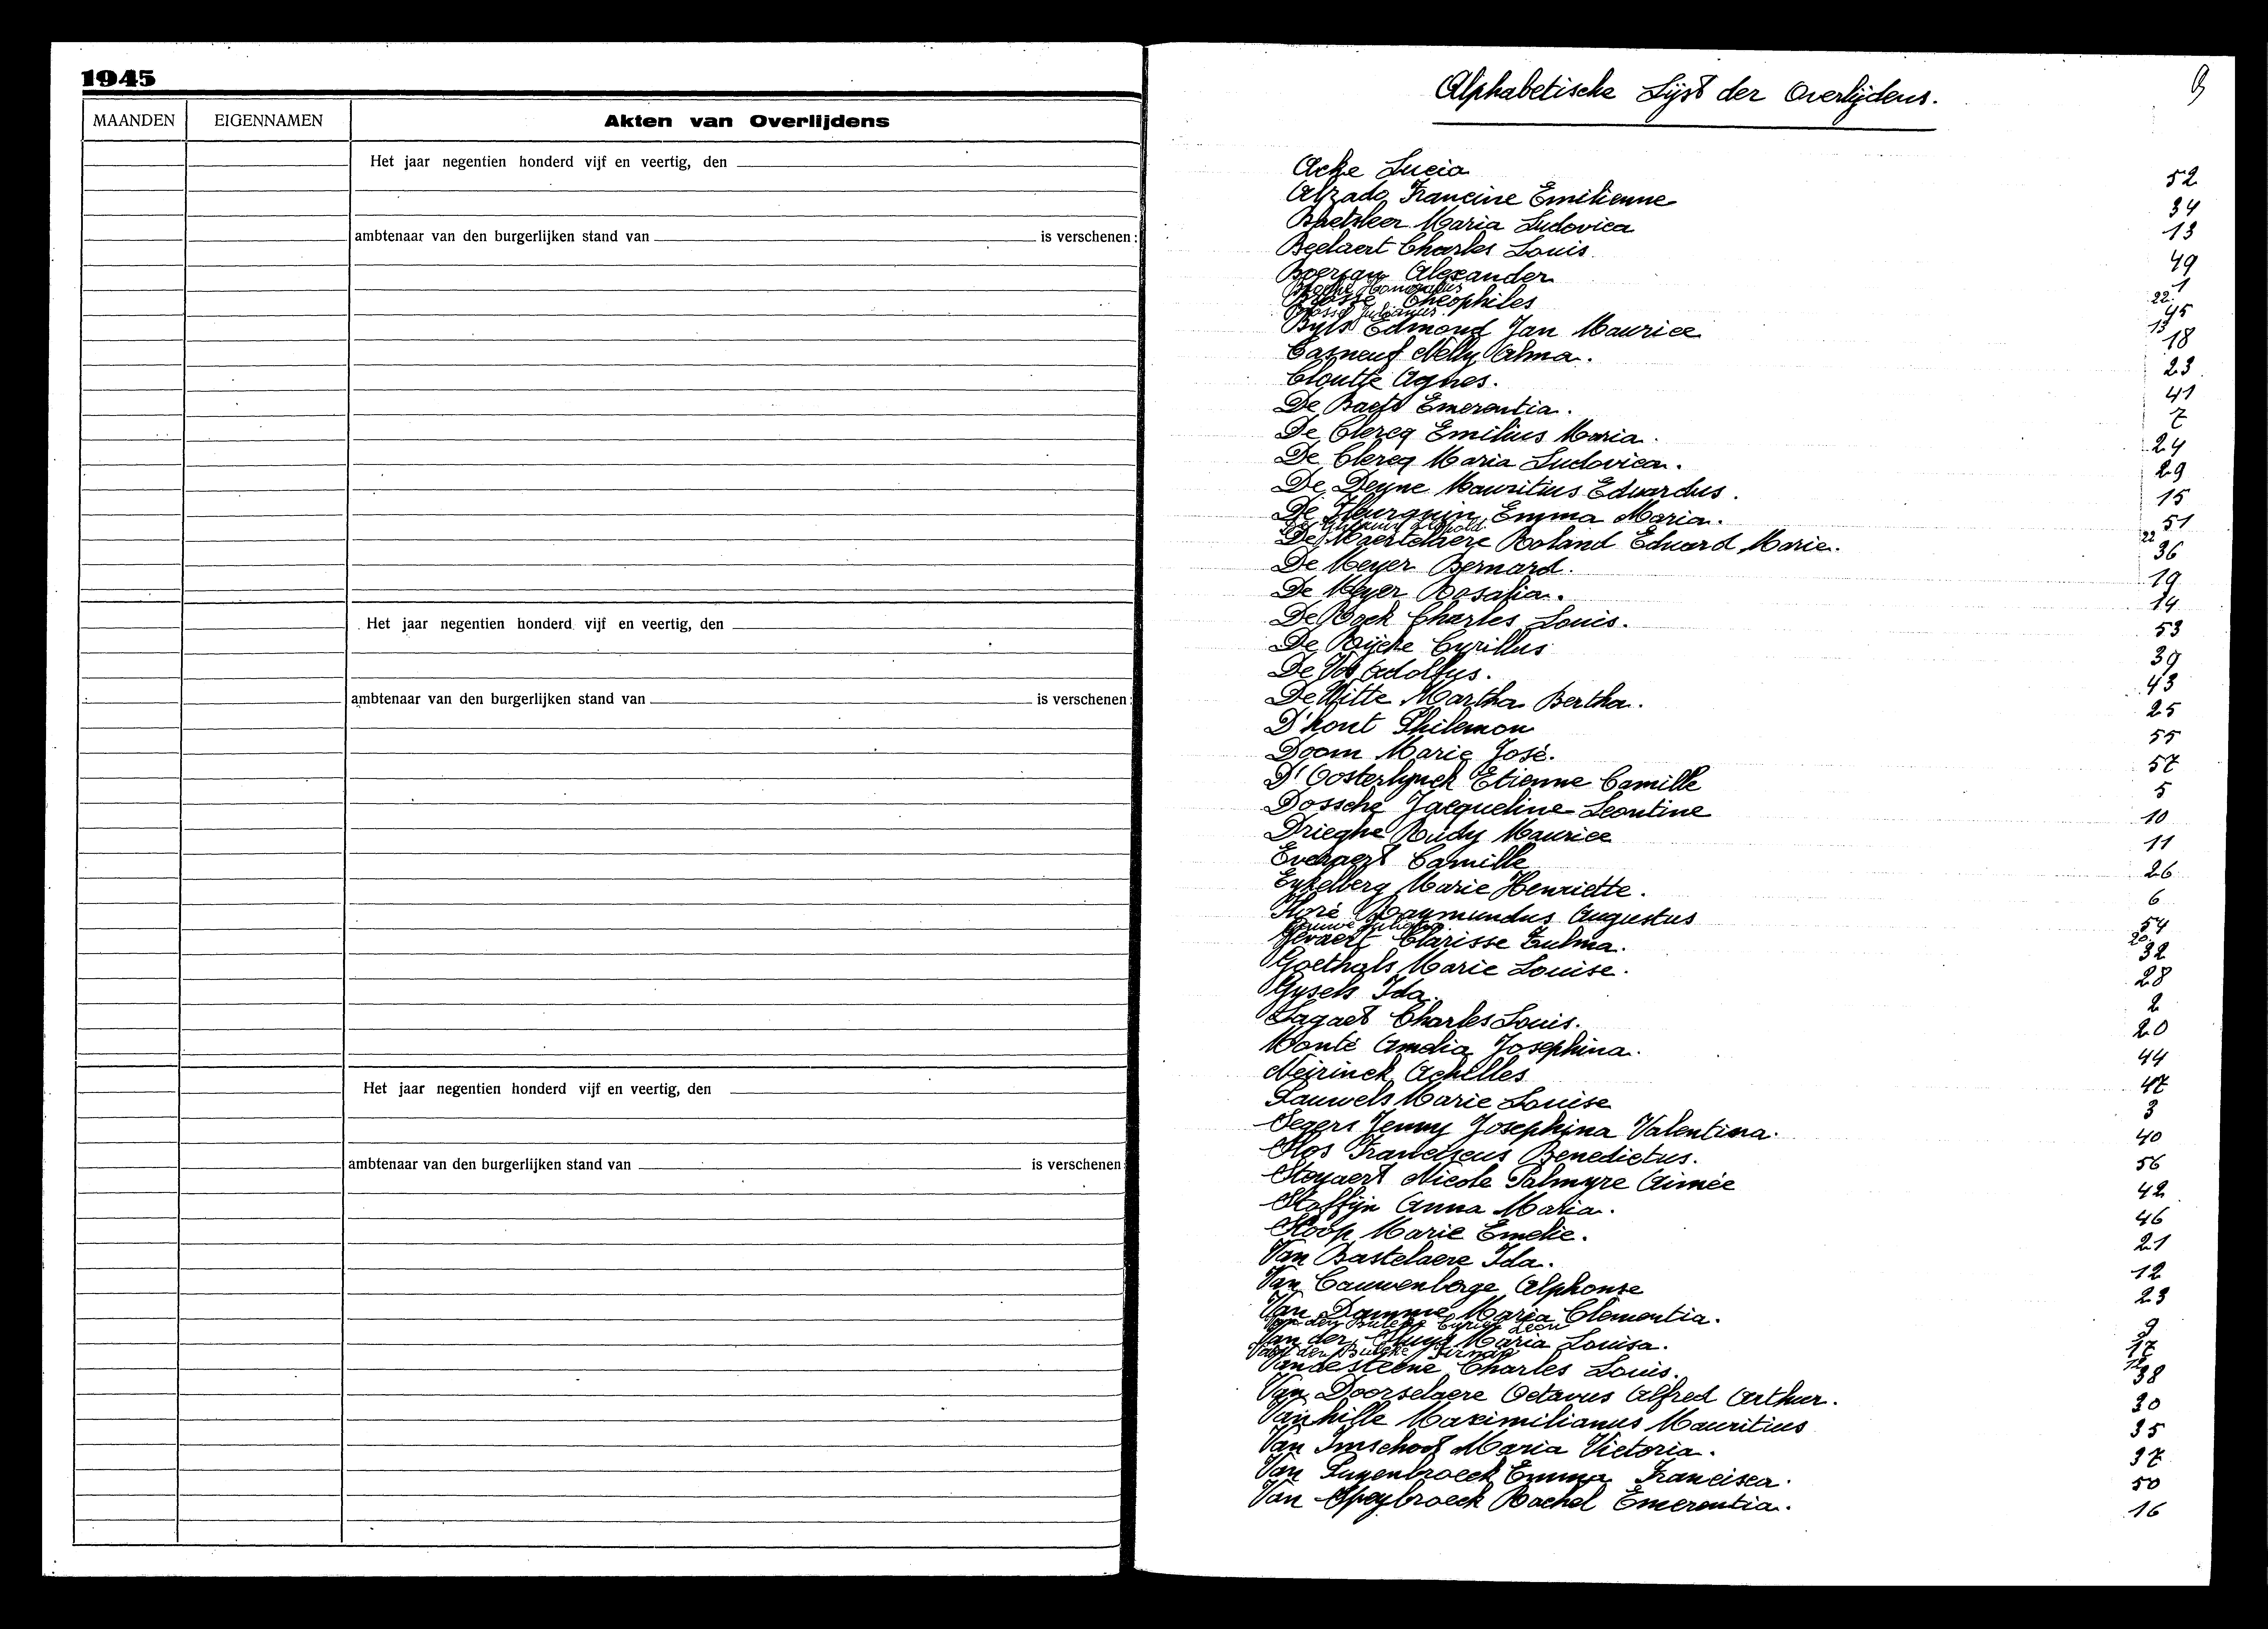 1945
MAANDEN EIGENNAMEN Akten van Overlijdens
Het jaar negentien honderd vijf en veertig, den
ambtenaar van den burgerlijken stand van is verschenen:
Het jaar negentien honderd vijf en veertig, den
ambtenaar van den burgerlijken stand van is verschenen:
Het jaar negentien honderd vijf en veertig, den
ambtenaar van den burgerlijken stand van is verschenen
Alphabetische Lijst der Overlijdens.
Acke Lucia 52
Alzado Francine Emilienne 34
Baetsleer Maria Ludovica 13
Beelaert Charles Louis 49
Boerjan Alexander 1
22
Theophiles 45
13
Byls Edmond Jan Maurice 18
Casneuf Nelly Alma. 23
Cloutje Agnes. 41
De Baets Emerentia. 7
De Clercq Emilius Maria. 24
De Clercq Maria Ludovica. 29
De Deyne Mauritius Eduardus. 15
De Fleurquin Emma Maria. 51
Leopold 22
De Maertelaere Roland Eduard Marie. 36
De Meyer Bernard. 19
De Meyer Rosalia. 14
De Rock Charles Louis. 53
De Rijcke Cyrillus 39
De Vos Adolfus. 43
De Witte Martha Bertha. 25
D'hont Philemon 55
Doom Marie José. 57
D'Oosterlynck Etienne Camille 5
Dossche Jacqueline Leontine 10
Drieghe Rudy Maurice 11
Everaert Camille 26
Eykelberg Marie Henriette. 6
Floré Raymundus Augustus 54
20
Gevaert Clarisse Zulma. 32
Goethals Marie Louise. 28
Gysels Ida. 2
Lagaet Charles Louis. 20
Monté Amelia Josephina. 44
Neirinck Achilles 47
Pauwels Marie Louise 3
Segers Jenny Josephina Valentina. 40
Slos Franciscus Benedictus. 56
Stoyaert Nicole Palmyre Aimée 42
Stoffijn Anna Maria. 46
Stoop Marie Emelie. 21
Van Bastelaere Ida. 12
Van Cauwenberge Alphonse 23
Van Damme Maria Clementia. 9
Van den Bulcke Leon
Van der Maria Louisa. 17
Van den Bulcke 12
Vandesteene Charles Louis. 38
Van Doorselaere Octavus Alfred Arthur. 30
Vanhille Maximilianus Mauritius 35
Van Imschoot Maria Victoria. 37
Van Puyenbroeck Emma Francisca. 50
Van Speybroeck Rachel Emerentia. 16